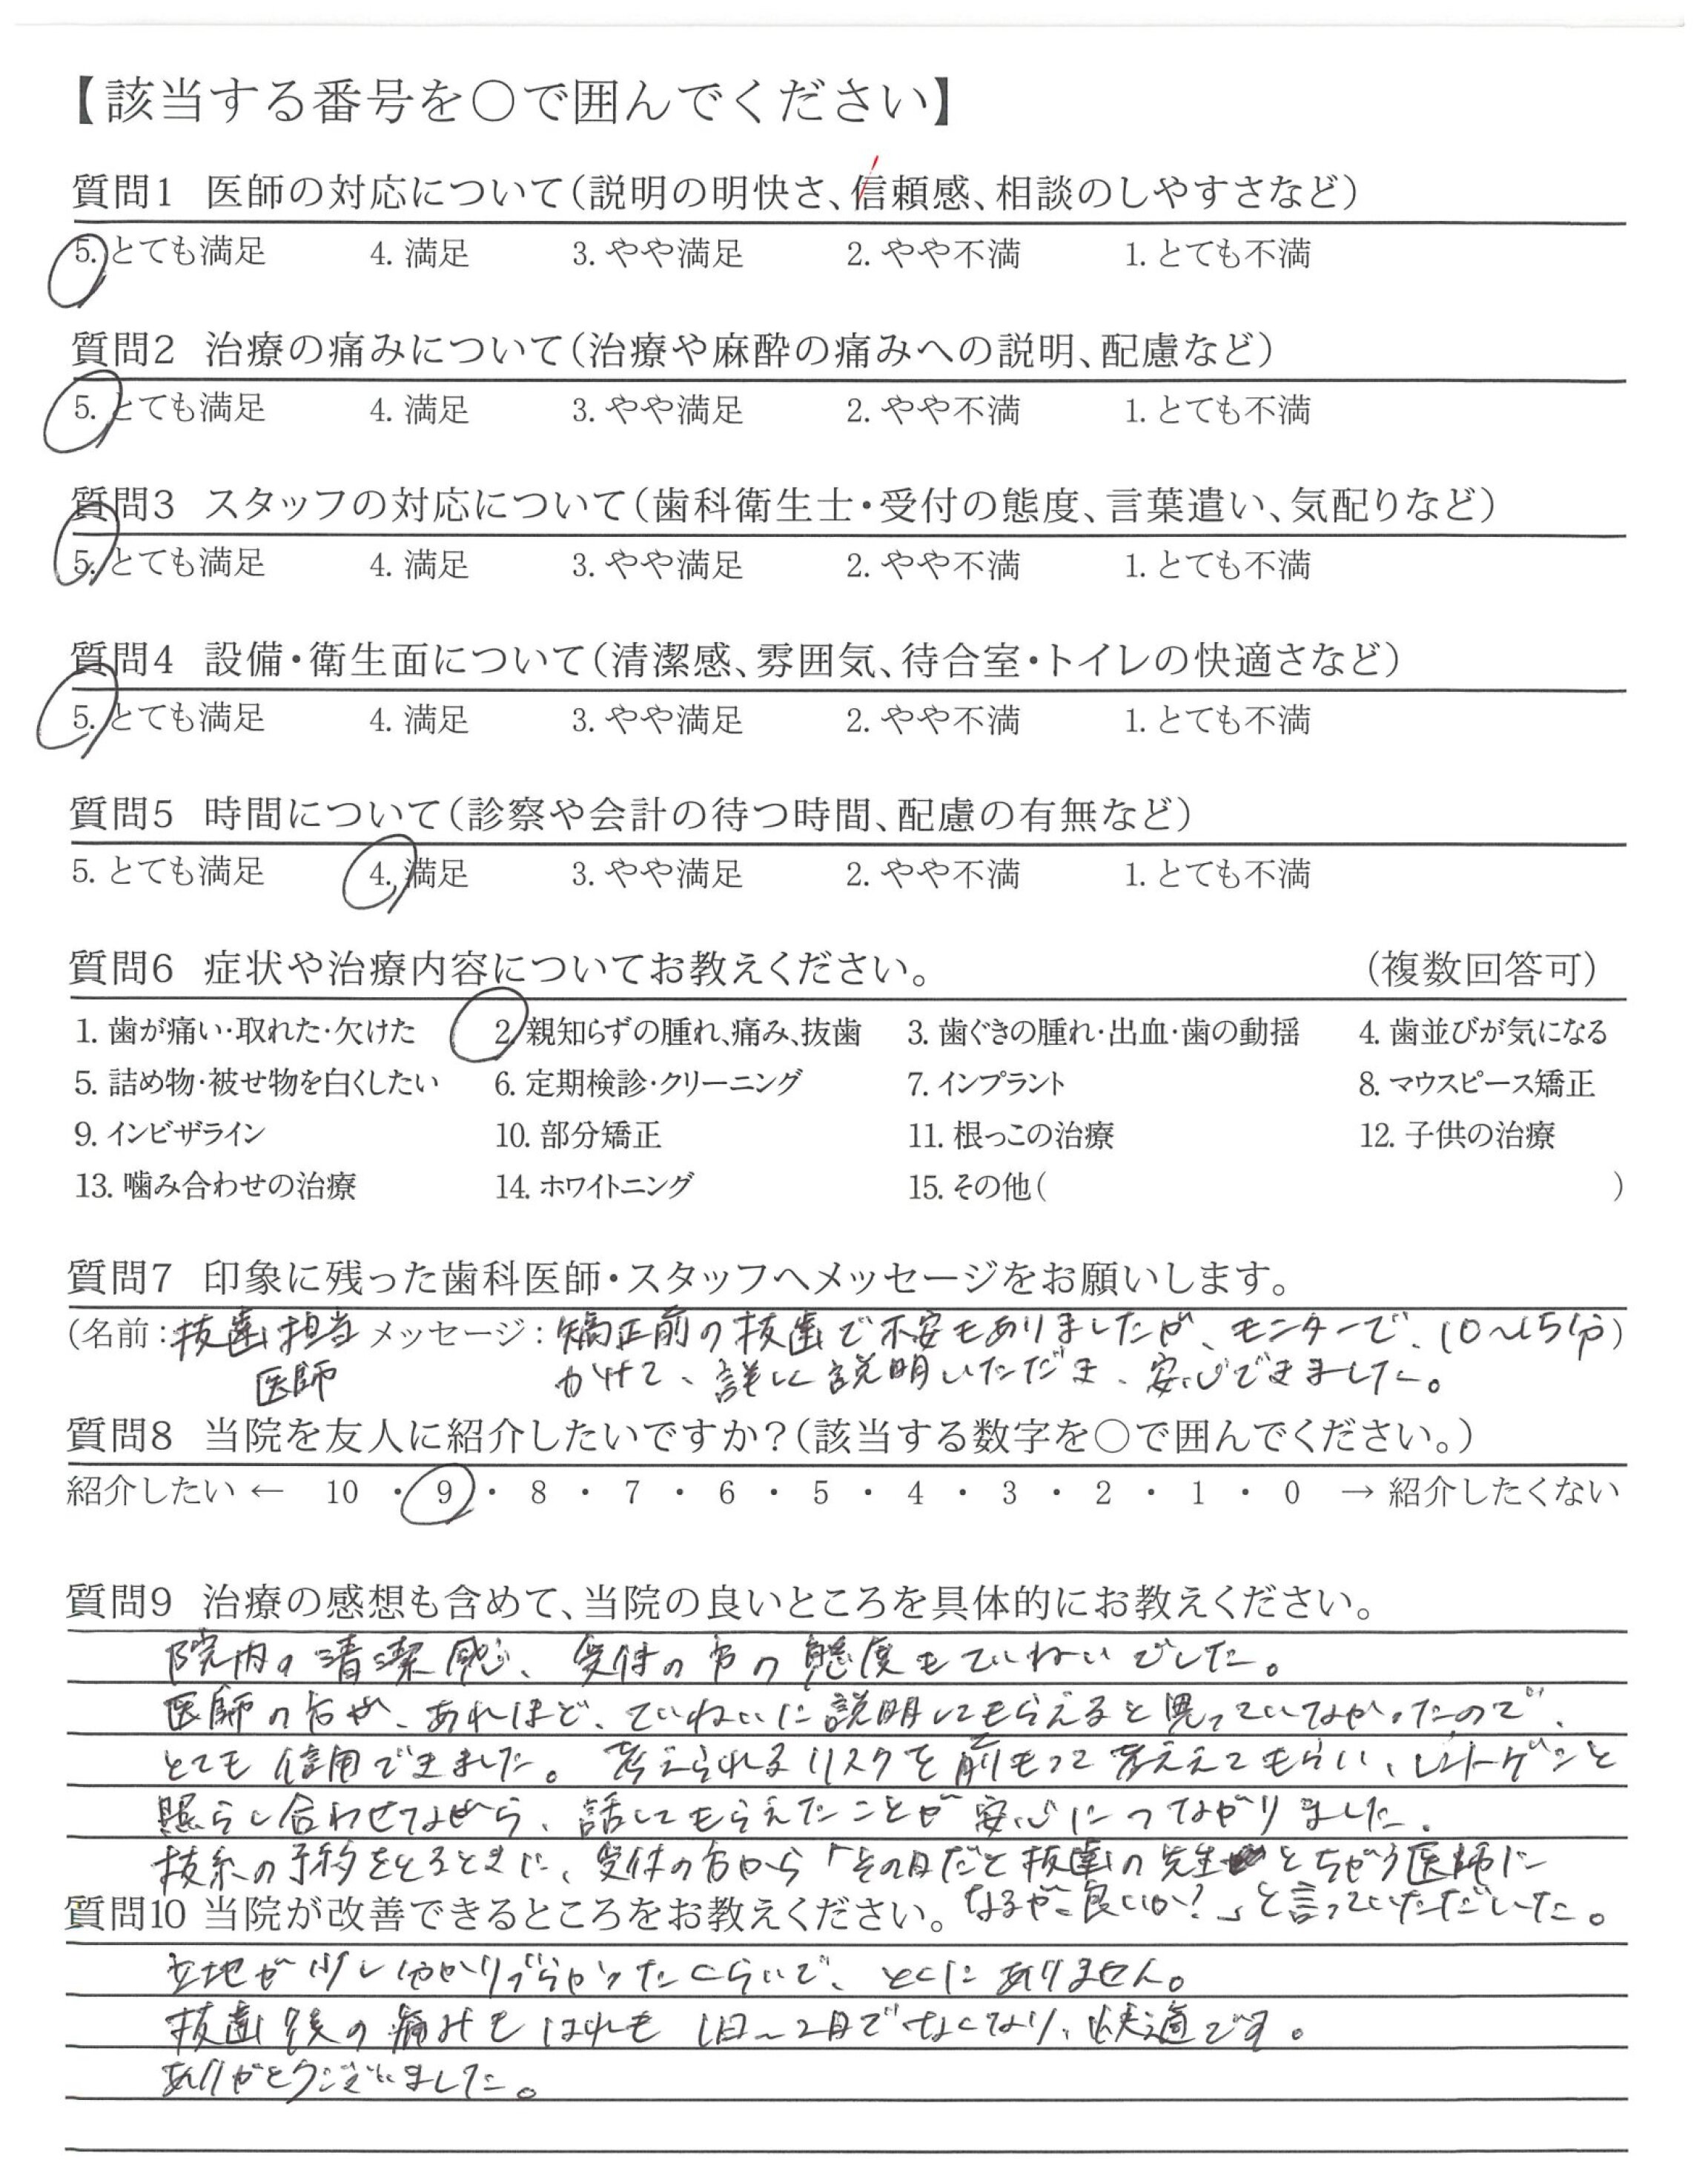 【該当する番号を○で囲んでください】
質問1 医師の対応について(説明の明快さ、信頼感、相談のしやすさなど)
5. とても満足 4. 満足 3. やや満足 2. やや不満 1. とても不満
質問2 治療の痛みについて(治療や麻酔の痛みへの説明、配慮など)
5. とても満足 4. 満足 3. やや満足 2. やや不満 1. とても不満
質問3 スタッフの対応について(歯科衛生士・受付の態度、言葉遣い、気配りなど)
5. とても満足 4. 満足 3. やや満足 2. やや不満 1. とても不満
質問4 設備・衛生面について(清潔感、雰囲気、待合室・トイレの快適さなど)
5. とても満足 4. 満足 3. やや満足 2. やや不満 1. とても不満
質問5 時間について(診察や会計の待つ時間、配慮の有無など)
5. とても満足 4. 満足 3. やや満足 2. やや不満 1. とても不満
質問6 症状や治療内容についてお教えください。 (複数回答可)
1. 歯が痛い・取れた・欠けた 2. 親知らずの腫れ、痛み、抜歯 3. 歯ぐきの腫れ・出血・歯の動揺 4. 歯並びが気になる
5. 詰め物・被せ物を白くしたい 6. 定期検診・クリーニング 7. インプラント 8. マウスピース矯正
9. インビザライン 10. 部分矯正 11. 根っこの治療 12. 子供の治療
13. 噛み合わせの治療 14. ホワイトニング 15. その他( )
質問7 印象に残った歯科医師・スタッフへメッセージをお願いします。
(名前:抜歯担当 メッセージ:矯正前の抜歯で不安もありましたが、モニターで、10〜15分)
医師 かけて、詳しく説明いただき、安心できました。
質問8 当院を友人に紹介したいですか?(該当する数字を○で囲んでください。)
紹介したい ← 10 ・ 9 ・ 8 ・ 7 ・ 6 ・ 5 ・ 4 ・ 3 ・ 2 ・ 1 ・ 0 → 紹介したくない
質問9 治療の感想も含めて、当院の良いところを具体的にお教えください。
院内の清潔感、受付の方の態度もていねいでした。
医師の方が、あれほど、ていねいに説明してもらえると思っていなかったので、
とても信用できました。考えられるリスクを前もって考えてもらい、レントゲンと
照らし合わせながら、話してもらえたことが安心につながりました。
抜糸の予約をとるときに、受付の方から「その日だと抜歯の先生とちがう医師に
なるが、良いか?」と言っていただいた。
質問10 当院が改善できるところをお教えください。
立地が少しわかりづらかったくらいで、とくにありません。
抜歯後の痛みもはれも1日〜2日でなくなり、快適です。
ありがとうございました。